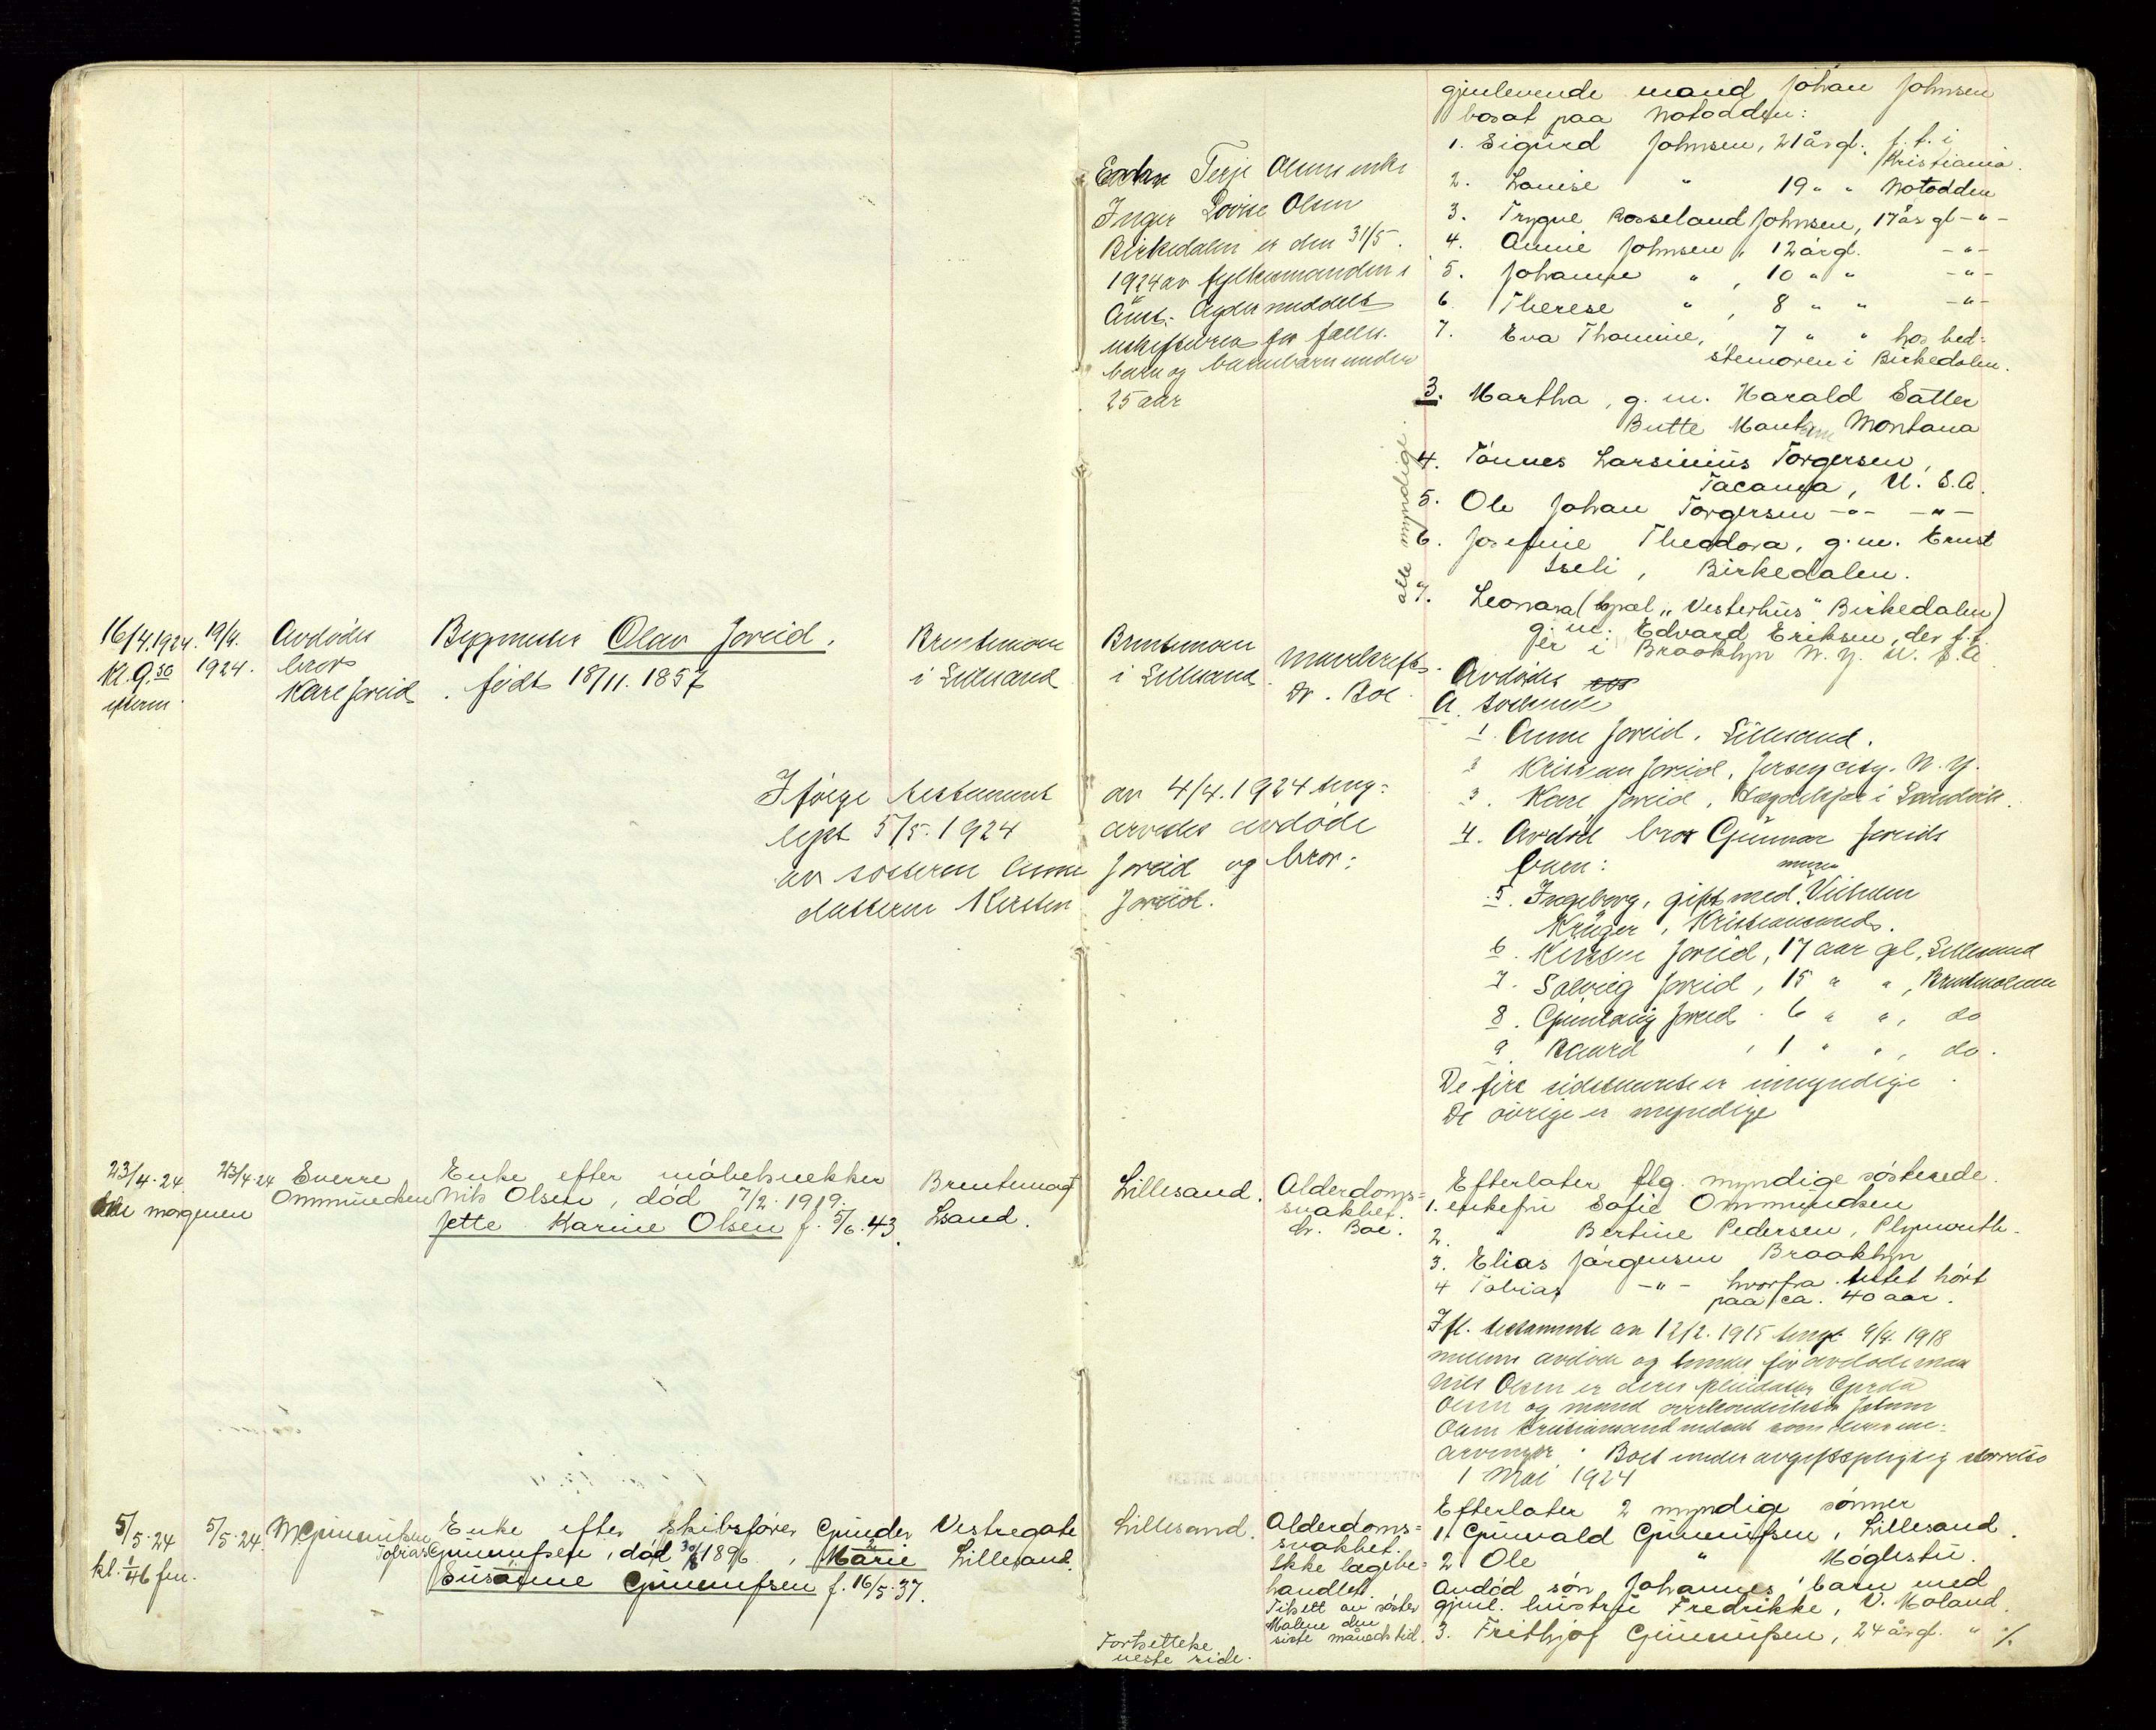 gjenlevende mand Johan Johnsen
bosat paa Notodden:
1. Sigurd Johnsen, 21 år gl. f. t. i
Kristiania.
2. Louise " 19 " " Notodden
3. Trygve Rosseland Johnsen, 17 år gl. -"-
4. Annie Johnsen, 12 år gl. -"-
5. Johanne " , 10 " " -"-
6. Therese " , 8 " " -"-
7. Eva Thomine, 7 " " hos bed=
stemoren i Birkedalen.
Terje Olsens enke
Inger Lovise Olsen
Birkedalen er den 31/5.
1924 av fylkesmanden i
Aust-Agder meddelt
uskiftebev. for fælles
barn og barnebarn under
25 aar
3. Martha, g. m. Harald Satter
Butte Montana
4. Tønnes Larsinius Torgersen,
Tacoma, U. S. A.
5. Ole Johan Torgersen -"- -"-
6. Josefine Theodora, g. m. Ernst
Iseli, Birkedalen.
7. Leonora (kpæl. "Vesterhus" Birkedalen)
g. m. Edvard Eriksen, der f. t.
er i Brooklyn N. Y. U. S. A
alle myndige.
16/4.1924. 19/4. Avdødes Bygmester Olav Joreid. Brentemoen Brentemoen
Kl. 9.50 1924. bror født 18/11. 1857 i Lillesand i Lillesand
efterm. Kare Joreid
Mavekreft.
Dr. Boe.
Avdødes
A. Søskende
1. Anne Joreid. Lillesand.
2. Kristian Joreid, Jersey city. N. Y.
3. Kare Joreid, i Landvik.
4. Avdød bror Gunnar Joreids
barn:
5. Ingeborg, gift med Vilhelm
Krüger, Kristiansand.
6. Kirsten Joreid, 17 aar gl, Lillesand
7. Solveig Joreid, 15 " " , Brentemoen
8. Gunlaug Joreid. 6 " " , do
9. Baard , 1 " " , do.
De fire sidstnævnte er umyndige.
De øvrige er myndige
Ifølge testament av 4/4. 1924 ting=
lyst 5/5. 1924 arvedes avdøde
av søsteren Anne Joreid og bror:
datteren Kirsten Joreid.
23/4.24 23/4-24 Sverre Enke efter møbelsnekker Brentemoen Lillesand.
morgenen Ommundsen Nils Olsen, død 7/2. 1919. Lsand.
Jette Karine Olsen f. 5/6.43.
Alderdoms=
svakhet.
dr. Boe.
Efterlater flg. myndige søskende.
1. enkefru Sofie Ommundsen
2. " Bertine Pedersen, Plymouth.
3. Elias Jørgensen Brooklyn
4 Tobias -"- hvorfra intet hørt
paa ca. 40 aar.
Ifl. testamente av 12/2. 1915 tingl. 9/4 1918
mellem avdøde og hendes før avdøde man
Nils Olsen er deres pleiedatter Gerda
Olsen og mand Johan
Olsen Kristiansand indsat som deres ene=
arvinger. Boet under avgiftspligtig størrelse
1 Mai 1924
5/5-24 5/5-24. Enke efter skibsfører Gunder Vestregate Lillesand.
kl. 1/4 6 fm. Tobias Gunnufsen, død 30/8 1896, Marie Lillesand.
Susanne Gunnufsen f. 16/5-37.
Alderdoms=
svakhet.
Ikke lægebe=
handlet.
Tilsett av søster
Malene den
siste måneds tid.
Fortsettelse
neste side.
Efterlater 2 myndige sønner
1. Grunvald Gunnufsen, Lillesand.
2. Ole " Møglestu.
Avdød søn Johannes' barn med
gjenl. hustru Fredrikke, V. Moland.
3. Frithjof Gunnufsen, 24 år gl. " ./.